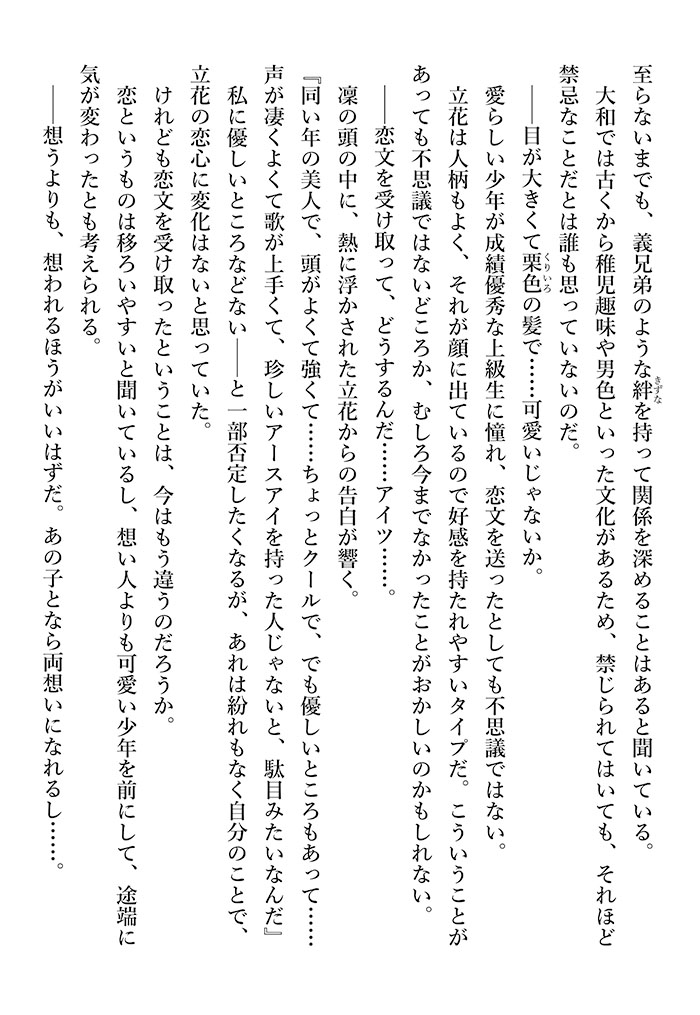 至らないまでも、義兄弟のような絆を持って関係を深めることはあると聞いている。
大和では古くから稚児趣味や男色といった文化があるため、禁じられてはいても、それほど
禁忌なことだとは誰も思っていないのだ。
――目が大きくて栗色の髪で……可愛いじゃないか。
愛らしい少年が成績優秀な上級生に憧れ、恋文を送ったとしても不思議ではない。
立花は人柄もよく、それが顔に出ているので好感を持たれやすいタイプだ。こういうことが
あっても不思議ではないどころか、むしろ今までなかったことがおかしいのかもしれない。
――恋文を受け取って、どうするんだ……アイツ……。
凜の頭の中に、熱に浮かされた立花からの告白が響く。
『同い年の美人で、頭がよくて強くて……ちょっとクールで、でも優しいところもあって……
声が凄くよくて歌が上手くて、珍しいアースアイを持った人じゃないと、駄目みたいなんだ』
私に優しいところなどない――と一部否定したくなるが、あれは紛れもなく自分のことで、
立花の恋心に変化はないと思っていた。
けれども恋文を受け取ったということは、今はもう違うのだろうか。
恋というものは移ろいやすいと聞いているし、想い人よりも可愛い少年を前にして、途端に
気が変わったとも考えられる。
――想うよりも、想われるほうがいいはずだ。あの子となら両想いになれるし……。